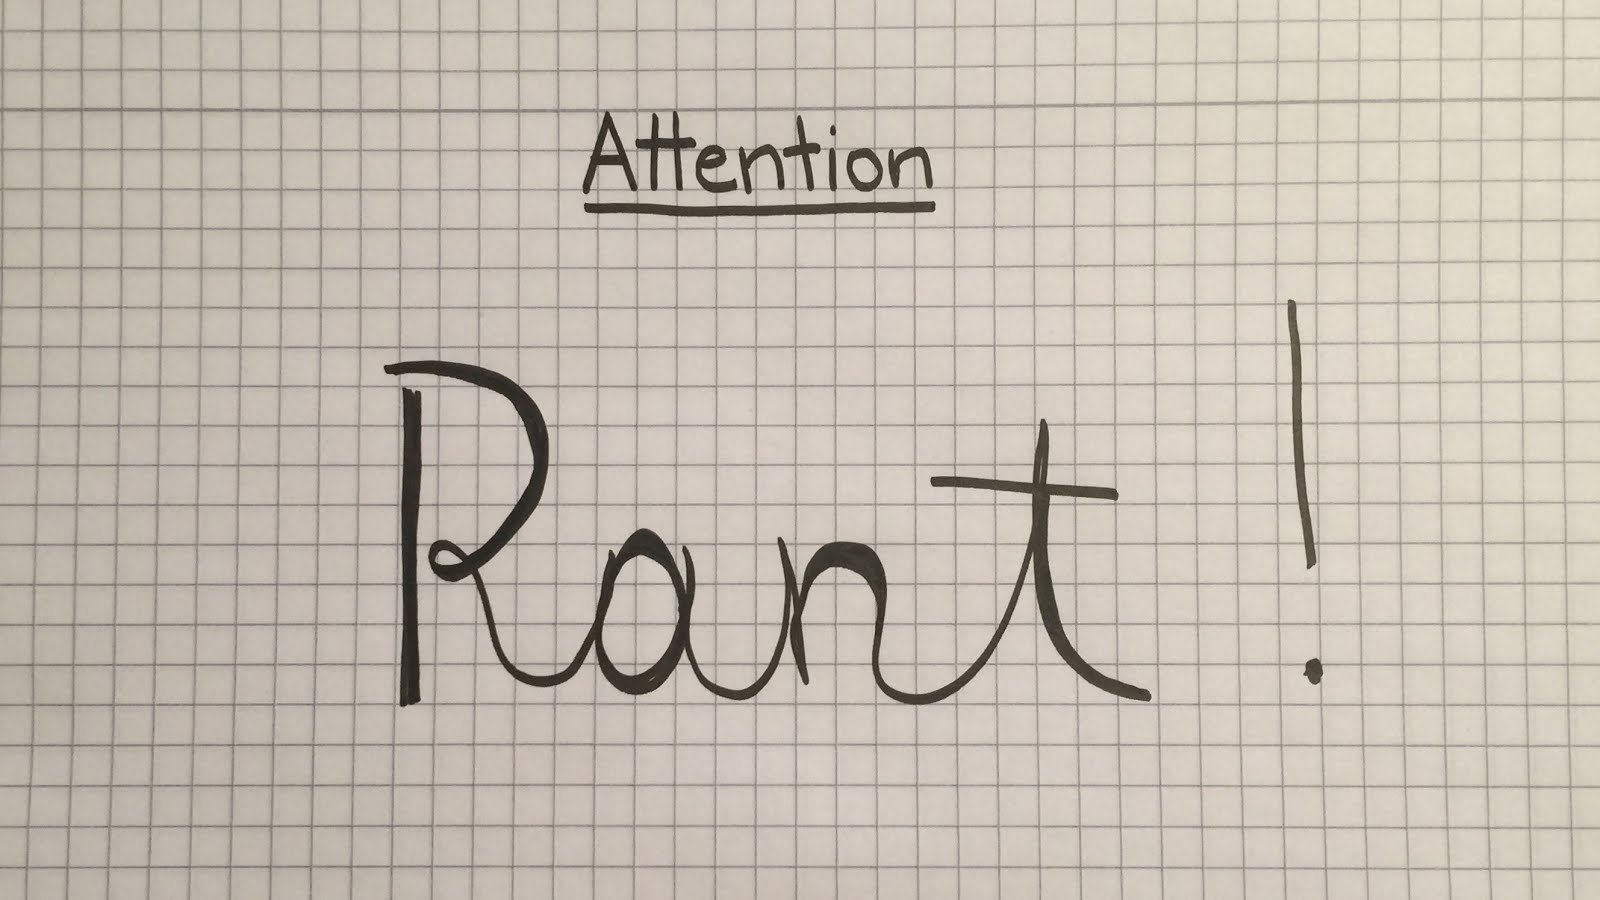 Attention
Rant !